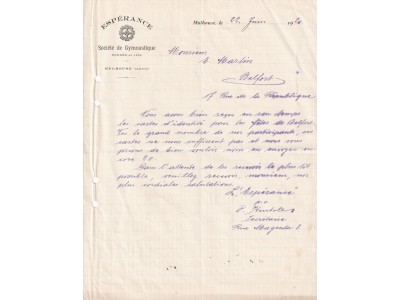 ESPÉRANCE
Société de Gymnastique
MULHOUSE
Mulhouse, le 22 Juin 1920
Monsieur
E Martin
Belfort
1 Rue de la République
Nous avons bien reçu en son temps
les cartes d'identité pour les fêtes de Belfort.
Vu le grand nombre de nos participants, ces
cartes ne nous suffisent pas et nous vous
prions de bien vouloir nous en envoyer en-
core 20.
Dans l'attente de les recevoir le plus tôt
possible, veuillez recevoir, monsieur, nos
plus cordiales salutations.
L'Espérance
Secrétaire
Rue Magenta